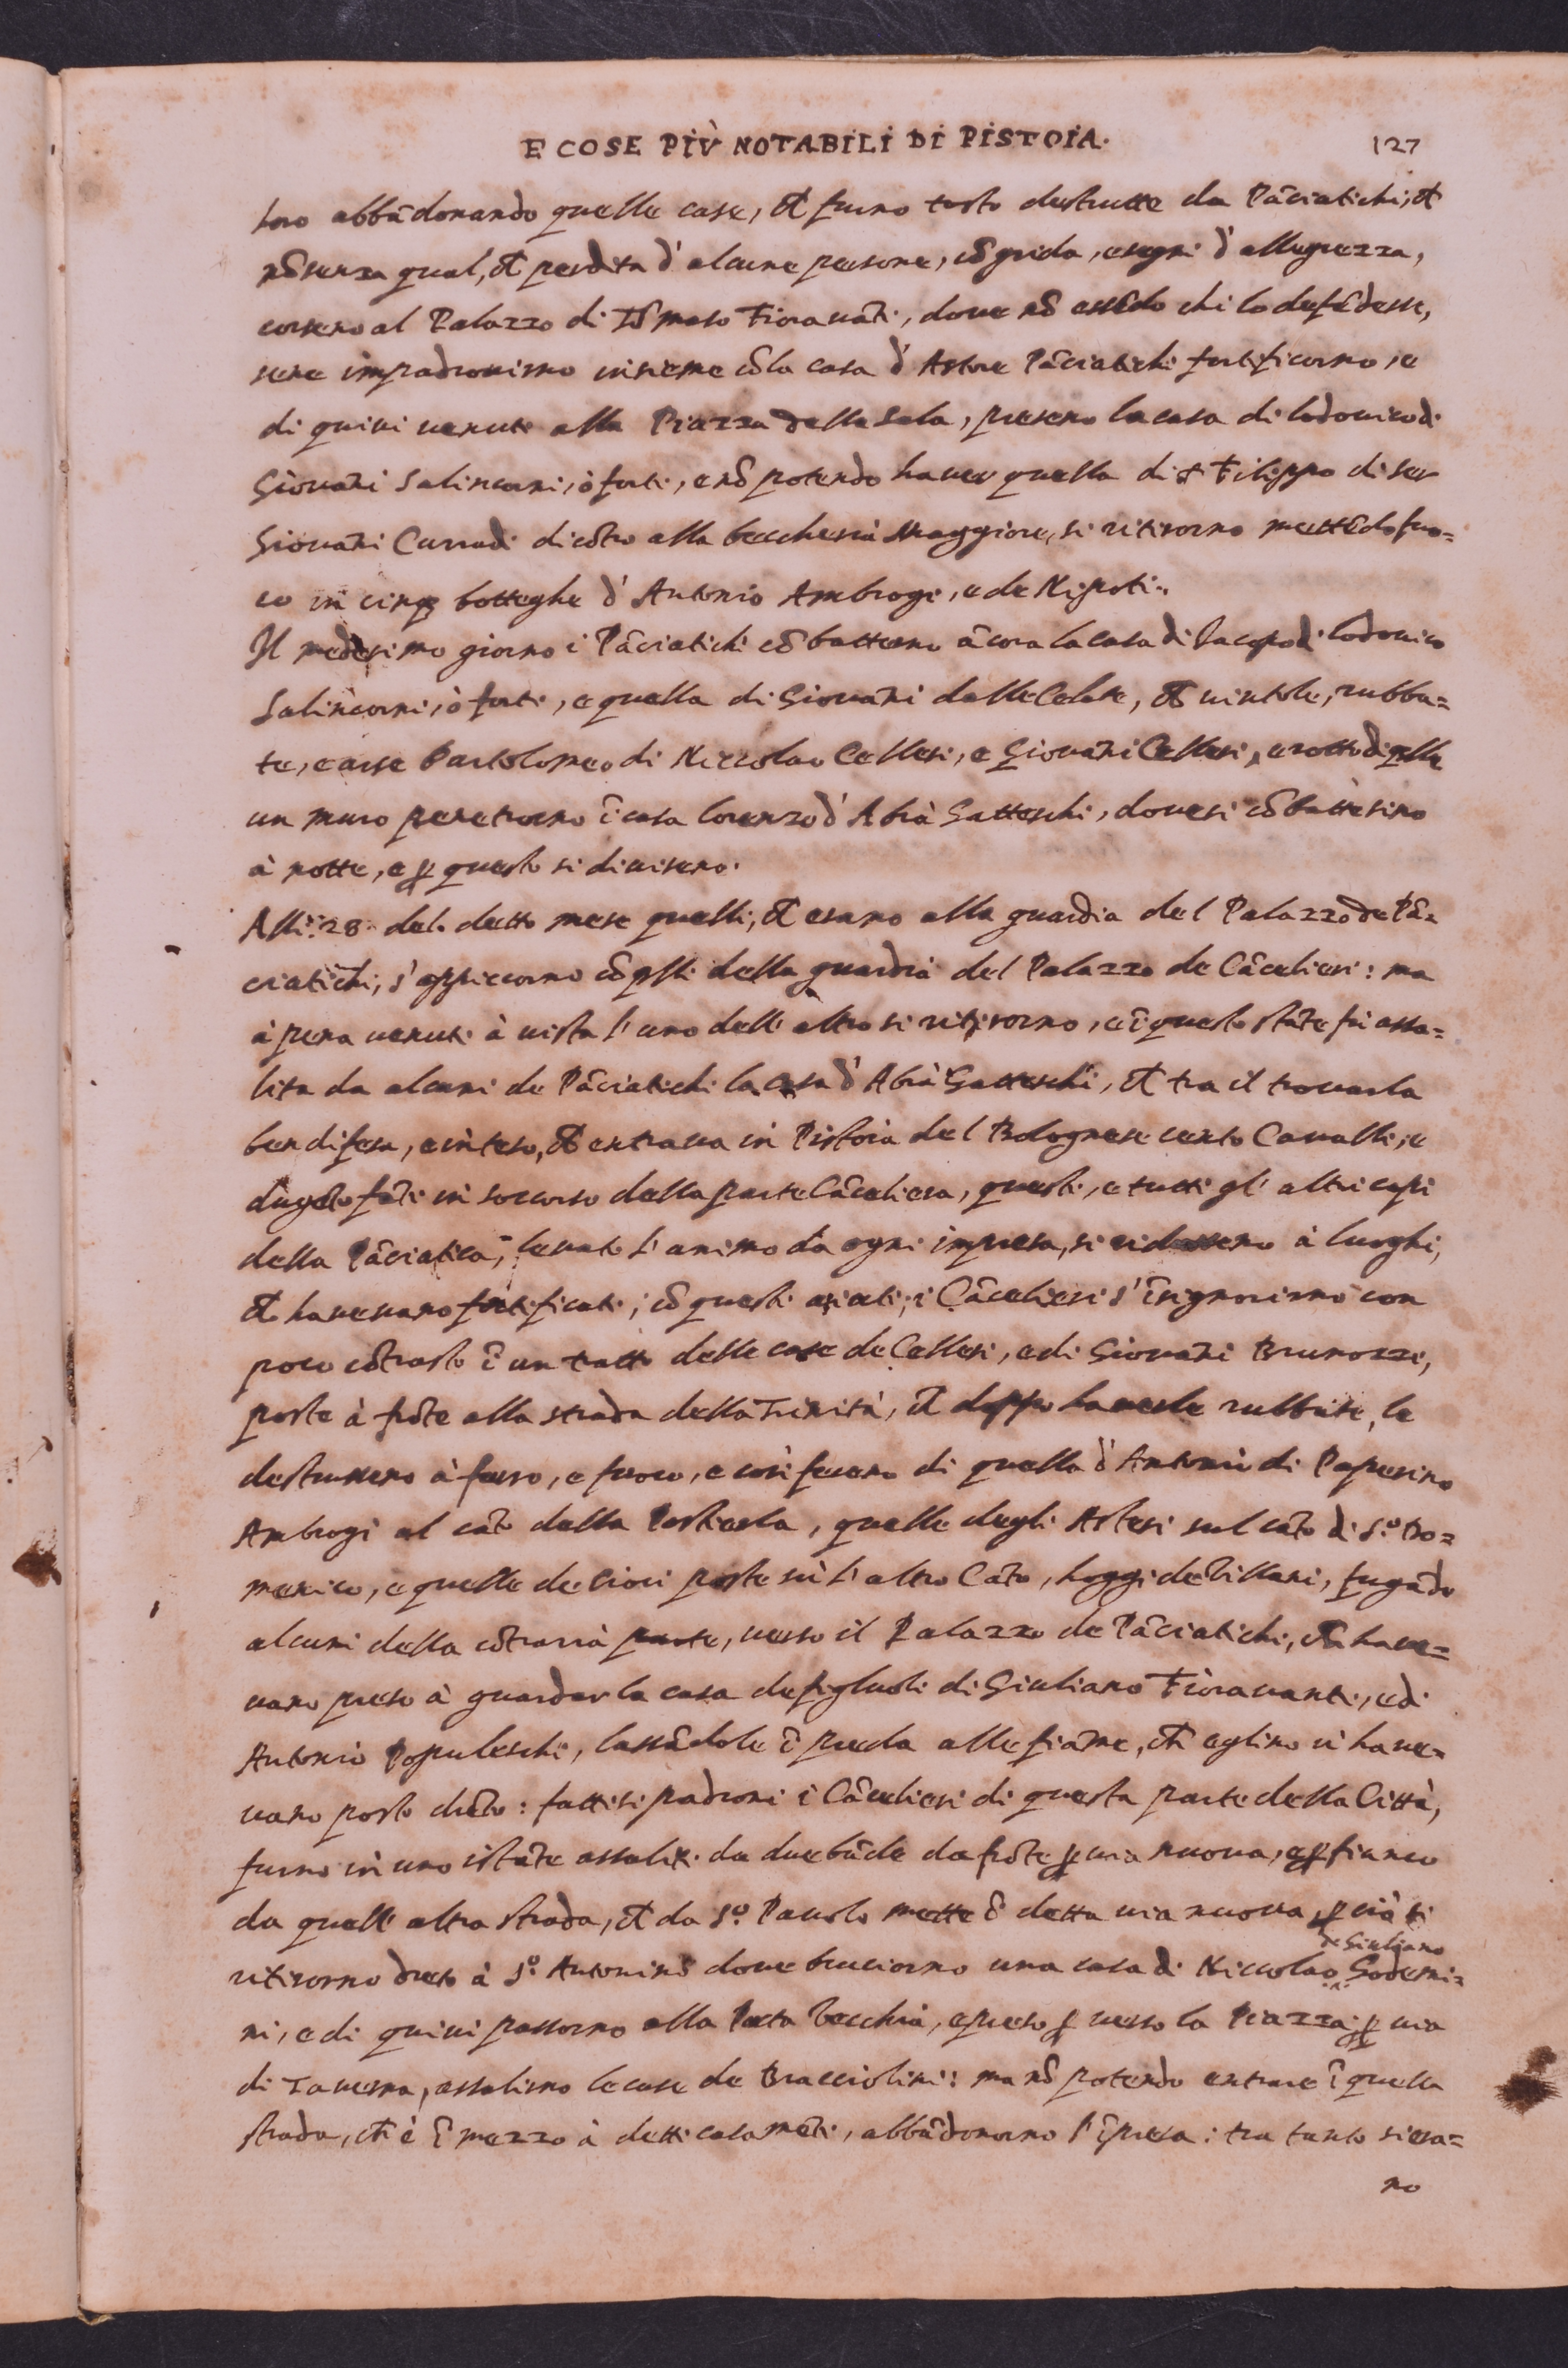 E COSE PIÙ NOTABILI DI PISTOIA. 127
loro abbādonando quelle case, et furno tosto destrutte da Pāciatichi, et
nō senza qual, et perdita d'alcune persone, cō grida, e segni d'allegrezza,
corseno al Palazzo di Tōmaso Fiorauāti, doue nō essēdo chi lo defēdesse,
sene impadronirno insieme cō la casa d'Astore Pāciatichi fortificorno, e
di quiui uenuti alla Piazza della Sala, preseno la casa di lodouico di
Giouāni Salincorni, ò forti, e nō potendo hauer quella di Filippo di ser
Giouāni Curradi dicōtro alla beccheria Maggiore, si ritirorno mettēdo fuo=
co in cinq botteghe d'Antonio Ambrogi, e de Nipoti.
Il medesimo giorno i Pāciatichi cōbatterno ācora la casa di Iacopo di lodouico
Salincorni, ò forti, e quella di Giouāni dalle Celate, et uintole, rubba=
te, e arse Bartolomeo di Niccolao Cellesi, e Giouāni Cellesi, e rotto di qlla
un muro penetrorno ī casa lorenzo d'Abrà Gatteschi, doue si cōbattè sino
à notte, e p questo si diuiseno.
Alli 28 del detto mese quelli, ch erano alla guardia del Palazzo de Pā=
ciatichi, s'appiccorno cō qlli della guardia del Palazzo de Cācelieri: ma
à pena uenuti à uista l'uno dell'altro si ritirorno, e ī questo stāte fù assa=
lita da alcuni de Pāciatichi la casa d'Abrà Gatteschi, et tra il trouarla
ben difesa, e inteso, ch entraua in Pistoia del Bolognese cento Caualli, e
dugēto fāti in soccorso della parte Cāceliera, questi, e tutti gl'altri capi
della Pāciatica, leuato l'animo da ogni impresa, si ridusseno à luoghi,
ch haueuano fortificati; cō questi aiuti, i Cācelieri s'īsignorirno con
poco cōtrasto ī un tratto delle case de Cellesi, e di Giouāni Brunozzi,
poste à frōte alla strada della Trinità, et doppo hauerle rubbate, le
destrusseno à ferro, e fuoco, e così feceno di quella d'Antonio di Paperino
Ambrogi al cāto della Porticola, quelle degli Astesi sul cāto di S.o Do=
menico, e quelle de Cioci poste sù l'altro Cāto, hoggi de Villani, fugādo
alcuni della cōtraria parte, uerso il Palazzo de Pāciatichi, ch haue=
uano preso à guardar la casa de figluoli di Giuliano Fiorauanti, e di
Antonio Popoleschi, lassādole ī preda alle fiāme, ch eglino ui haue=
uano posto drēto: fattisi padroni i Cācelieri di questa parte della Città,
furno in uno istāte assaliti da due bāde da frōte p uia nuoua, e p fianco
da quell'altra strada, ch da S.o Pauolo mette ī detta uia nuoua, p ciò si
ritirorno dreto à S.o Antonino doue bruciorno una casa di Niccolao de Giuliano Godemi=
ni, e di quiui passorno alla Porta Vecchia, e preso p uerso la Piazza, p uia
di Tauerna, assalirno le case de Bracciolini: ma nō potendo entrare ī quella
strada, ch è ī mezzo à detti casamēti, abbādonorno l'īpresa: tra tanto si era=
no